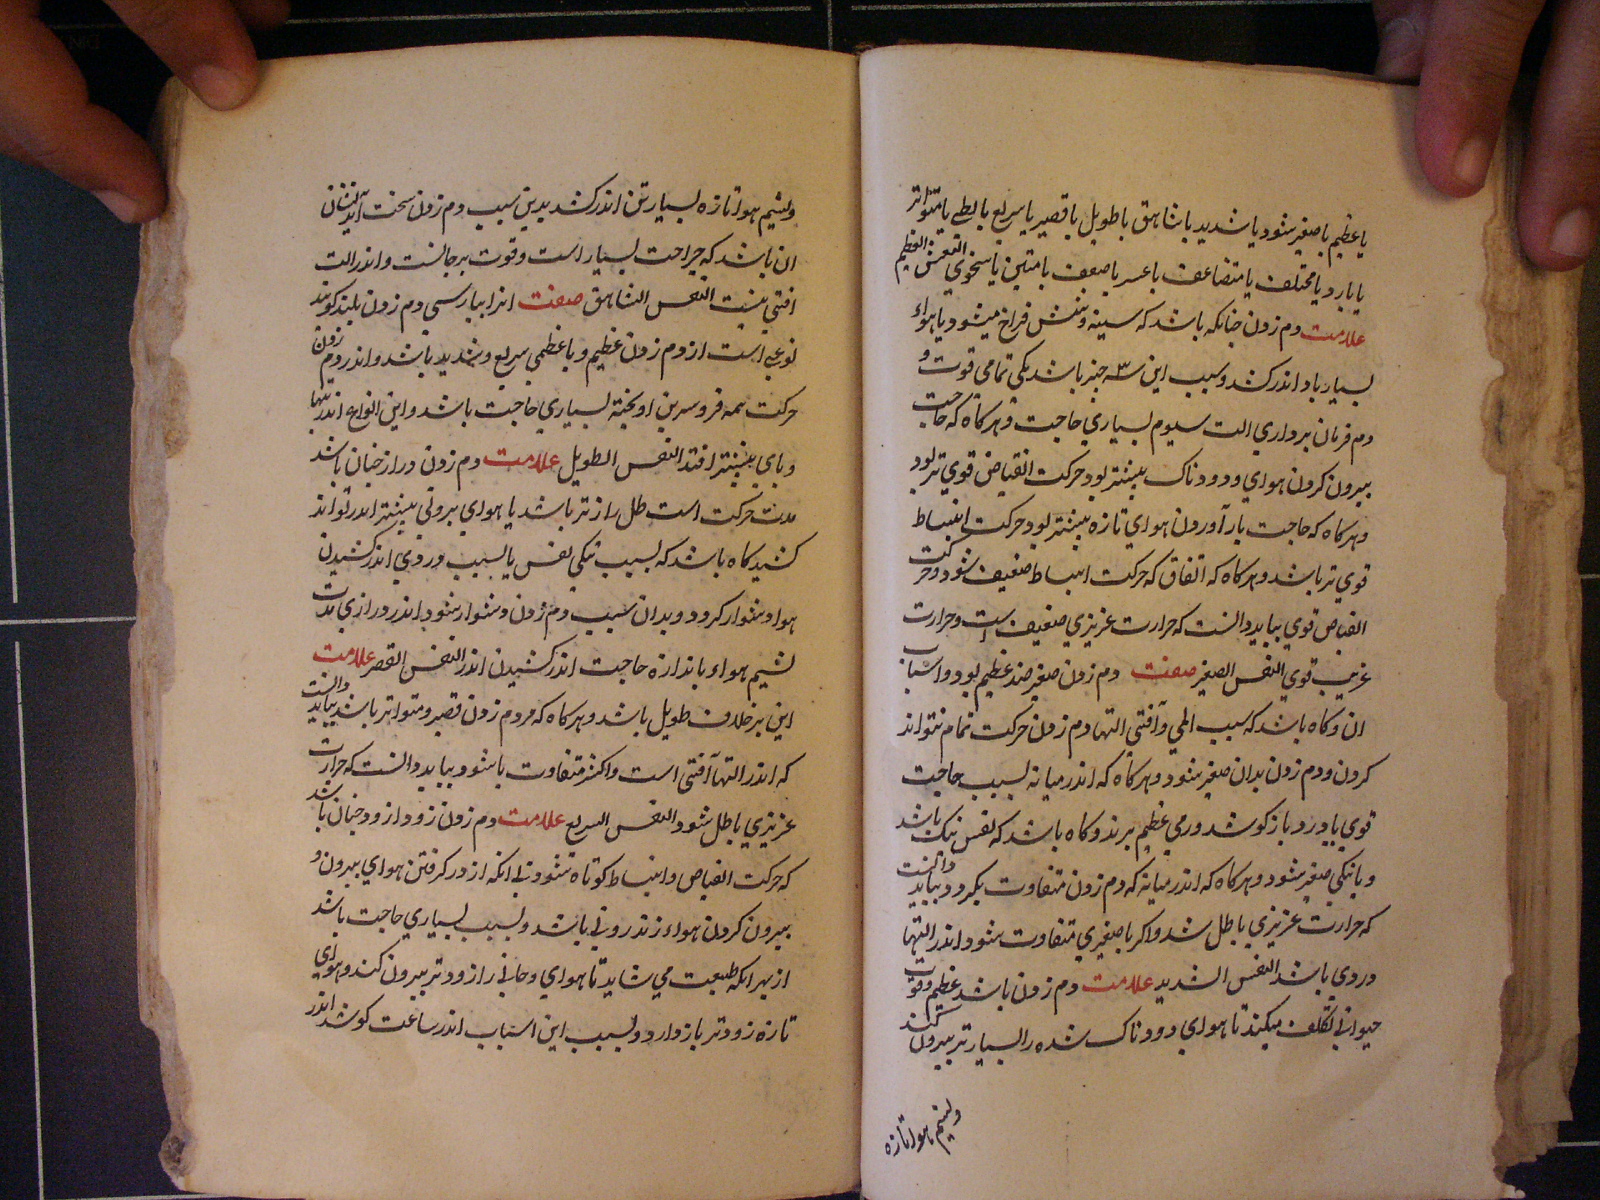 یا عظیم یا صغیر شود یا شدید یا شاهق یا طویل یا قصیر یا سریع یا بطی یا متواتر
یا بارد یا مختلف یا متضاعف یا عسر یا ضعف یا متین یا سخوی النفس العظیم
علامت دم زدن چنانکه باشد که سینه وشش فراخ میشود یا هواء
بسیار باد اندر کشد وسبب این سه چیز باشد یکی تمامی قوت و
دم فرمان برداری الت سیوم بسیاری حاجت وهرکاه که حاجت
بیرون کردن هوای دودناک بیشتر بود حرکت انقباض قوی تر بود
وهرکاه که حاجت باز آوردن هوای تازه بیشتر بود حرکت انبساط
قوی تر باشد وهرکاه که اتفاق که حرکت انبساط ضعیف شود وحرکت
انقباض قوی بباید دانست که حرارت غریزی ضعیف است وحرارت
غریب قوی النفس الصغیر صفت دم زدن صغیر ضد عظیم بود واسباب
ان وکاه باشد که سبب المی وآفتی التها دم زدن حرکت تمام نتواند
کردن ودم زدن بدان صغیر شود وهرکاه که اندر میانه بسبب حاجت
قوی یا درد باز کوشد ودمی عظیم برند وکاه باشد که نفس تنک باشد
وبا تنکی صغیر شود وهرکاه که اندر میانه که دم زدن متفاوت بکردد بباید دانست
که حرارت غریزی باطل شد واکر با صغیری متفاوت شود اندر التها
دردی باشد النفس الشدید علامت دم زدن باشد عظیم وقوت
حیوانی تکلف میکند تا هوای دودناک شده را بسیار تر بیرون کند
ونسیم هوا تازه
ونسیم هوا تازه بسیار تن اندر کشد بدین سبب دم زدن سخت آید نشان
ان باشد که چراحت بسیار است وقوت برجاست واندر الت
افتی نیست النفس الشاهق صفت انرا بپارسی دم زدن بلند کویند
نوعی است از دم زدن عظیم وبا عظمی سریع وشدید باشد واندر دم زدن
حرکت همه فرو سرین او بجنبد بسیاری حاجت باشد واین انواع اندر تبها
وبای بیشتر افتد النفس الطویل علامت دم زدن دراز چنان باشد
مدت حرکت است طل رازتر باشد یا هوای برونی بیشتر اندر تواند
کشید کاه باشد که بسبب تنکی نفس یا بسبب دردی اندر کشیدن
هوا دشوار کردد وبدان سبب دم زدن دشوار شود اندر درازی مدت
نسیم هواء باندازه حاجت اندر کشیدن اندر النفس القصر علامت
این بر خلاف طویل باشد وهرکاه که مردم زدن قصیر ومتواتر باشد بباید دانست
که اندر التها آفتی است واکنز متفاوت باشود بباید دانست که حرارت
غریزی باطل شود النفس السریع علامت دم زدن زود ازود چنان باشد
که حرکت انقباض وانبساط کوتاه نشود نی انکه از در کرفتن هوای بیرون و
بیرون کردن هواء زندرونی باشد وبسبب بسیاری حاجت باشد
از بهر انکه طبیعت می شاید تا هوای دخانی را زودتر بیرون کند وهوای
تازه زودتر باز وارد وبسبب این اسباب اندر ساعت کوشد اندر